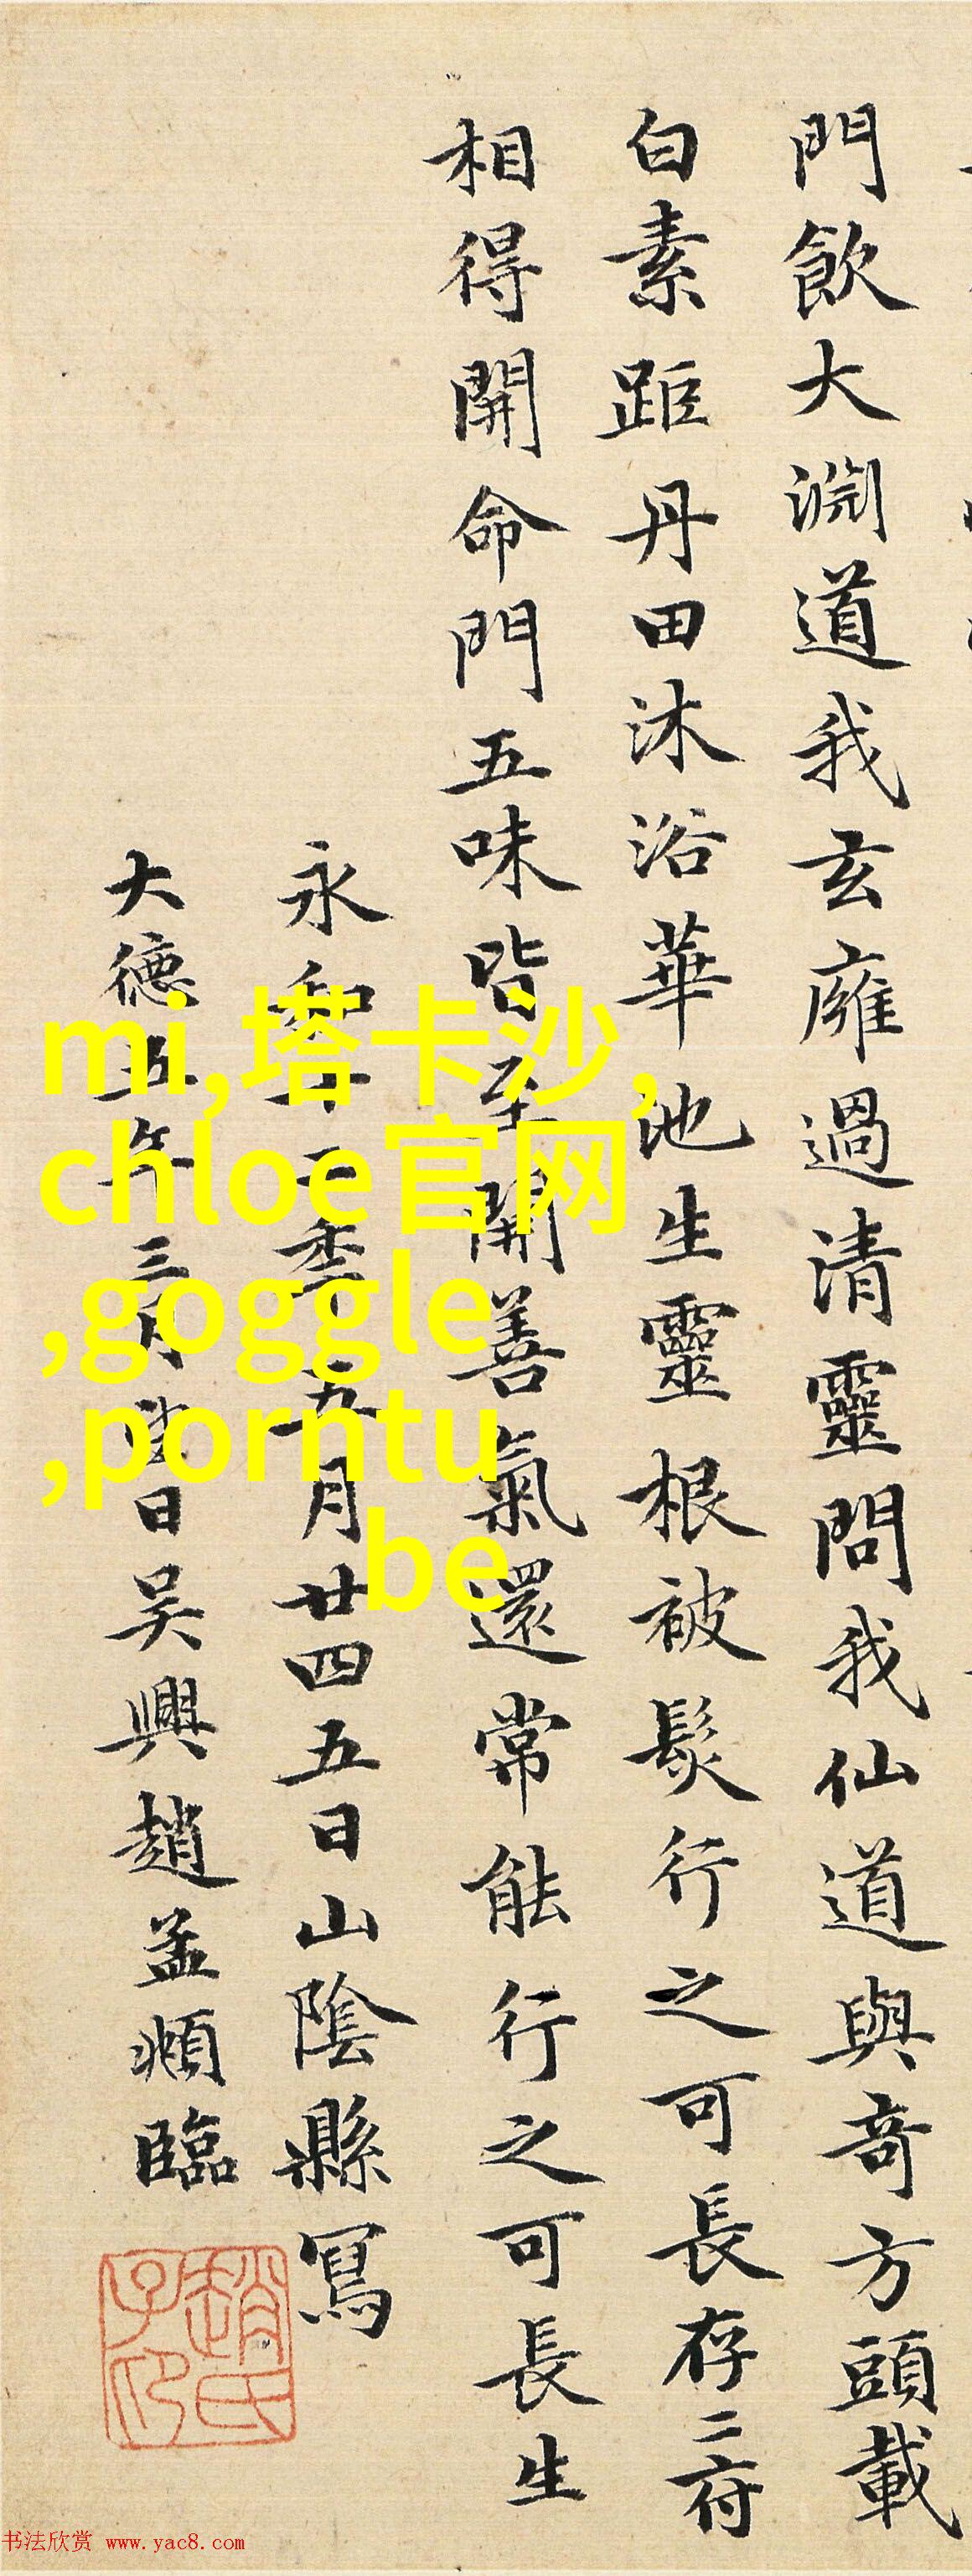 門飲大淵道我玄廱過清靈問我仙道與奇方頭載
白素距丹田沐浴華池生靈根被髮行之可長存二府
相得開命門五味皆至開善氣還常能行之可長生
永和十二年五月廿四五日山陰縣寫
大德五年三月日吳興趙孟頫臨
趙氏子印
mi,塔卡沙,
chloe官网
,goggle
,porntu
be
书法欣赏 www.yac8.com